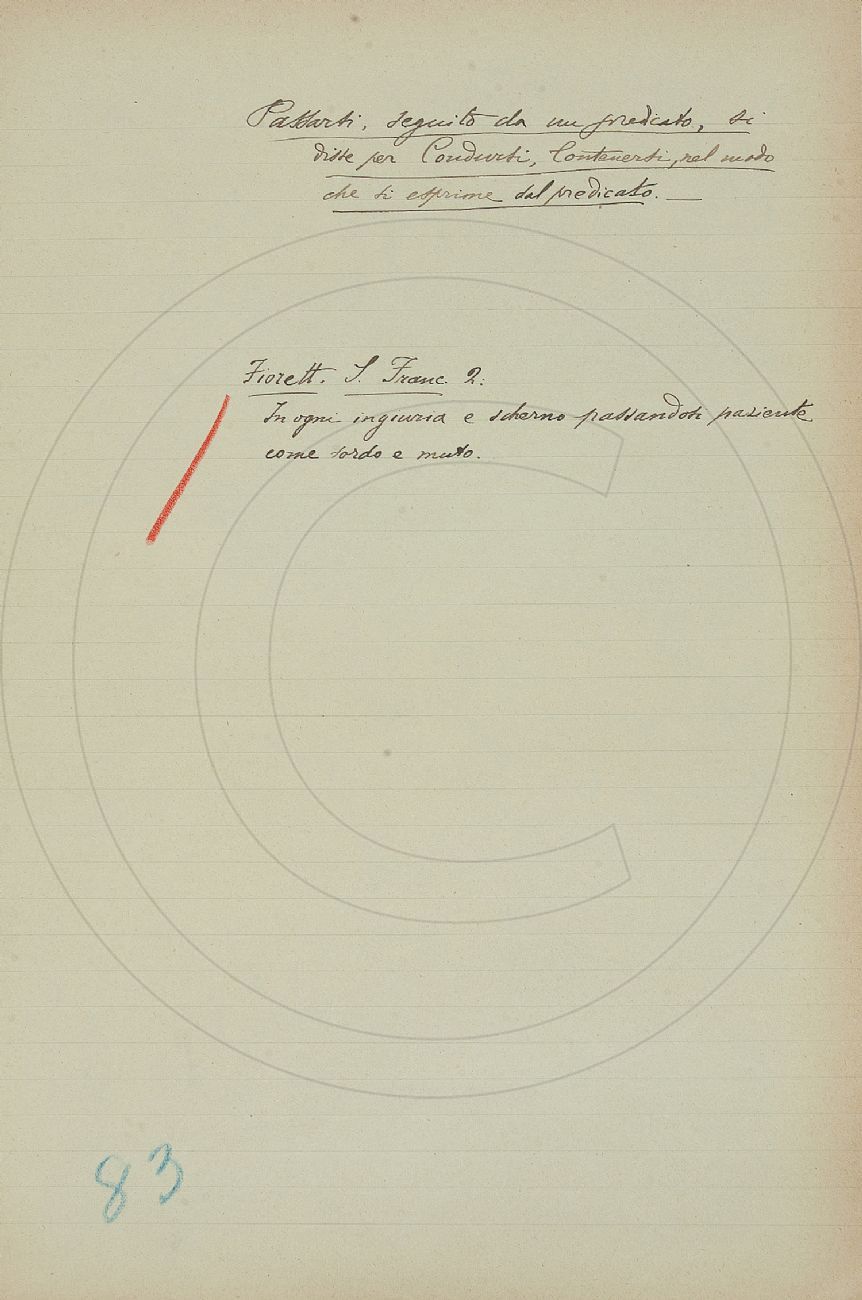 Passarsi, seguito da un predicato, si
disse per Condursi, Contenersi, nel modo
che si esprime dal predicato. —
Fiorett. S. Franc. 2:
In ogni ingiuria e scherno passandosi paziente
come sordo e muto.
83